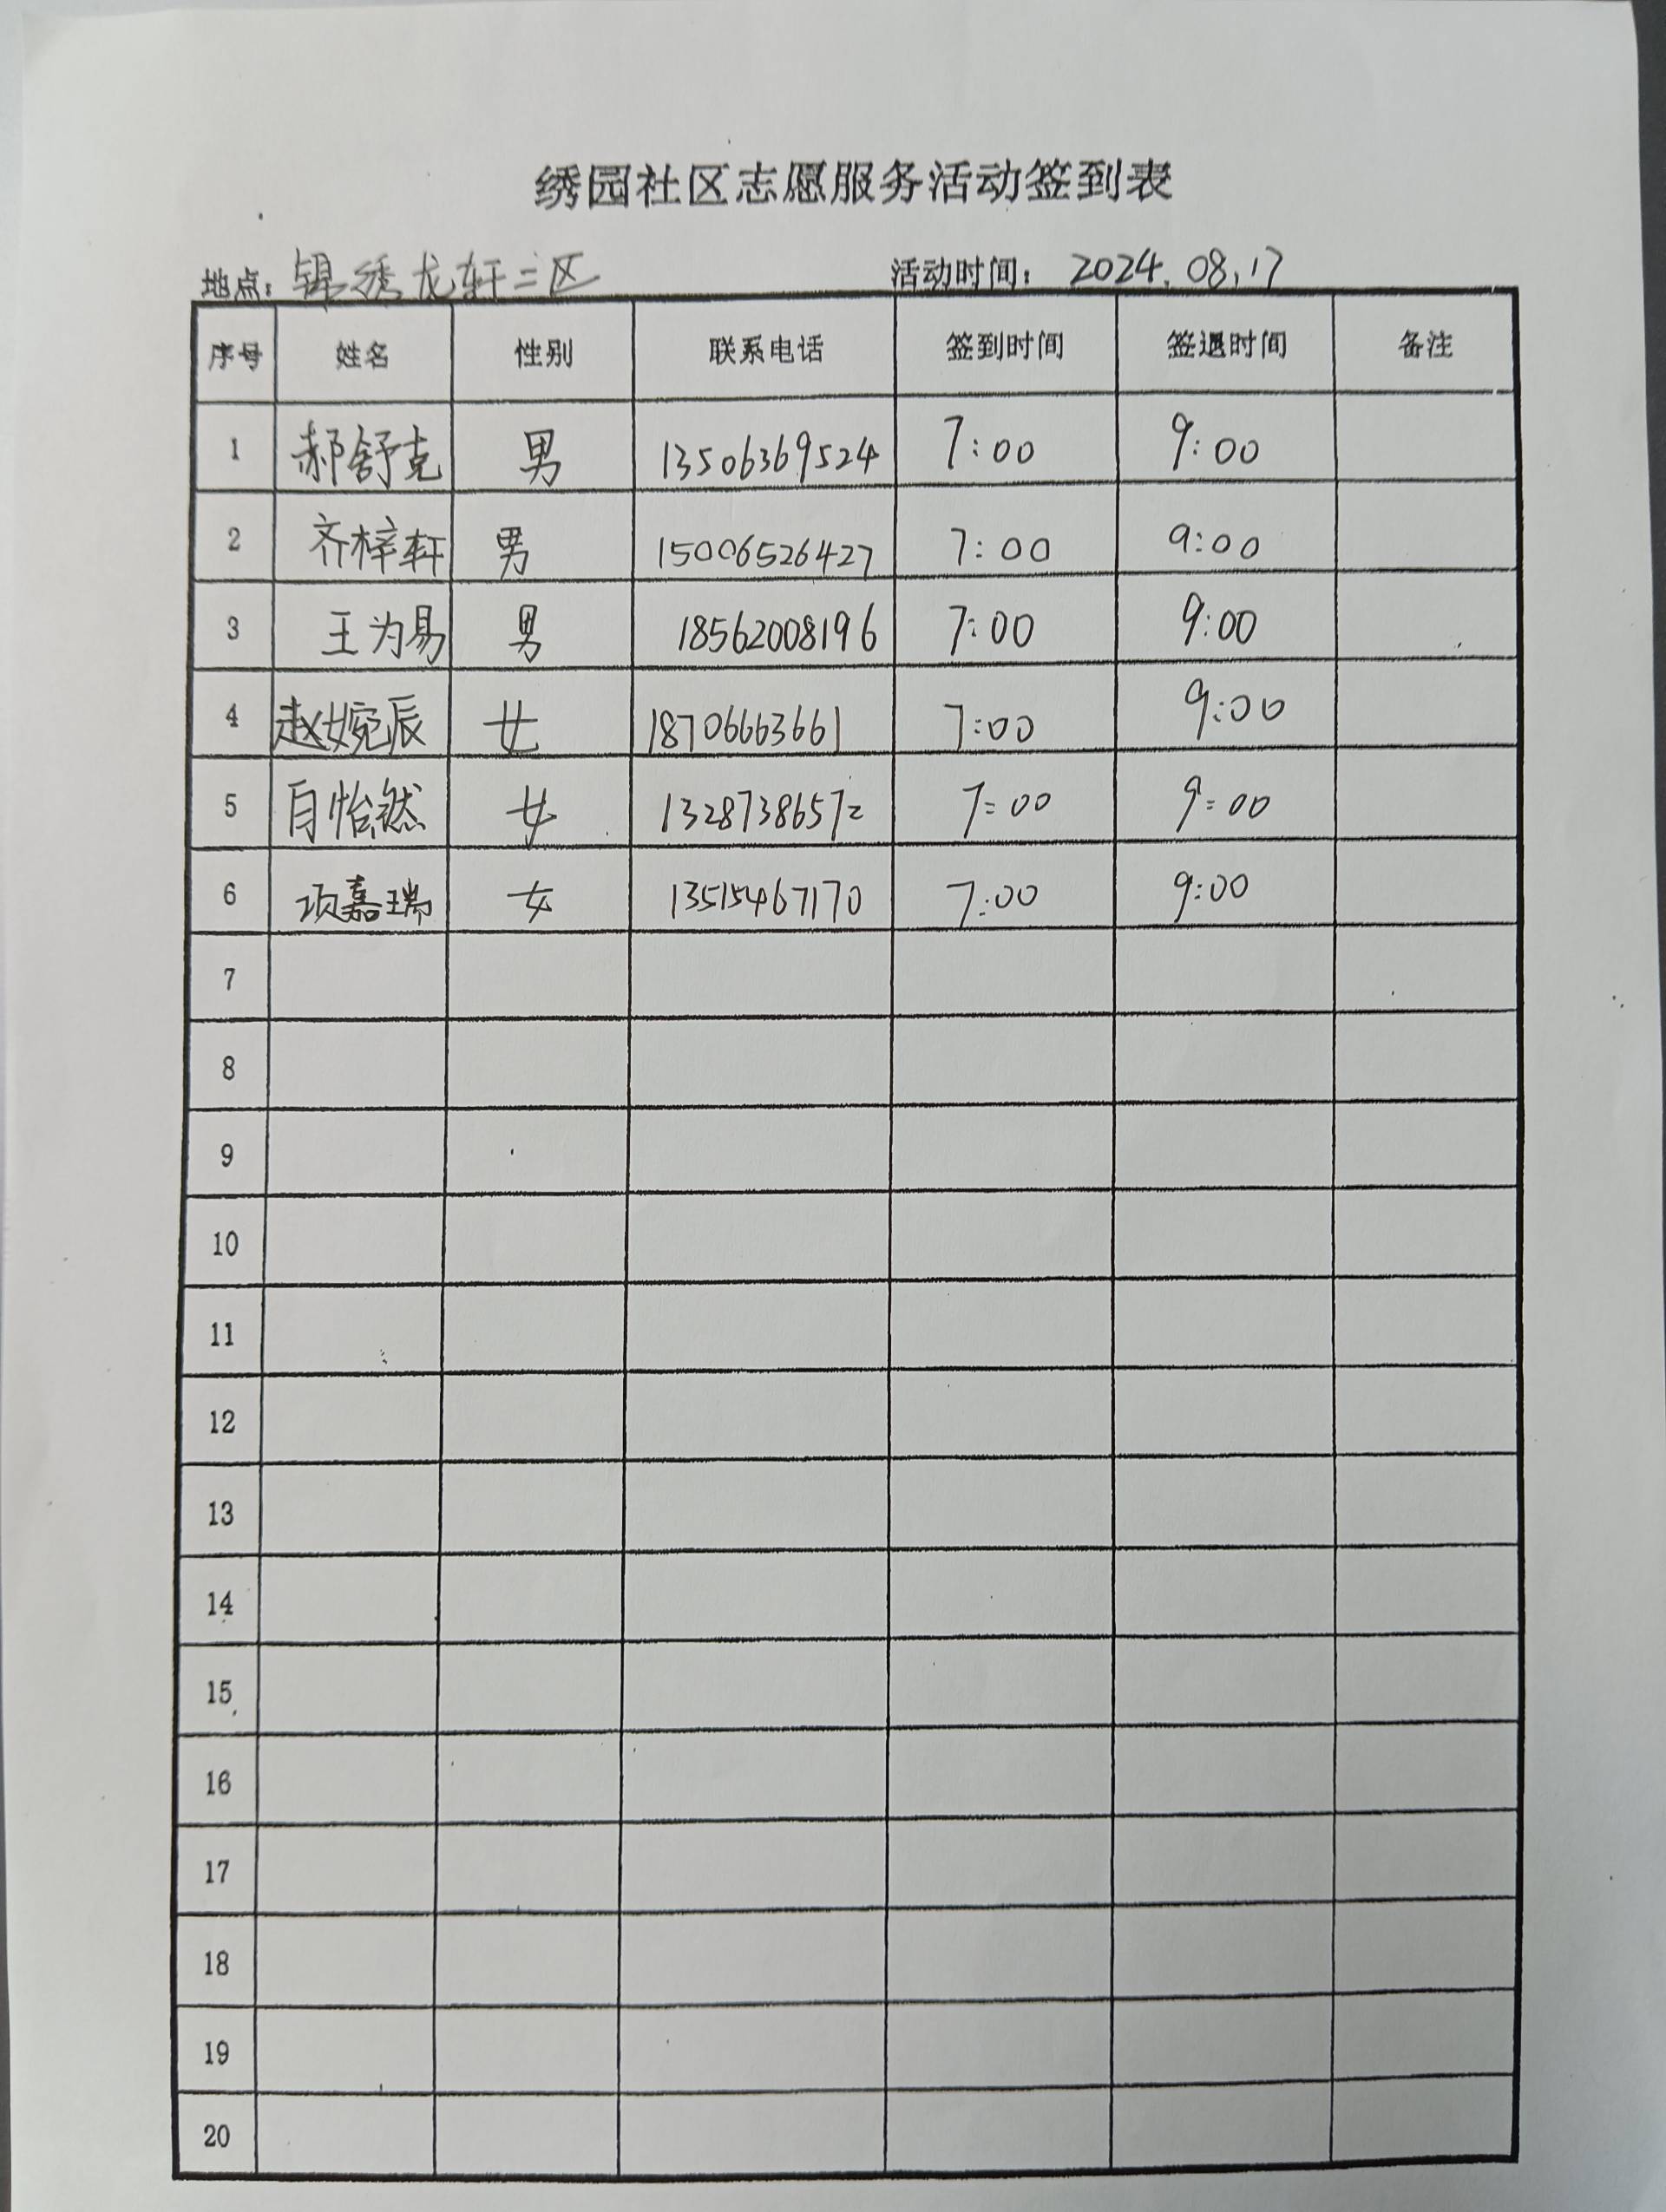 绣园社区志愿服务活动签到表
地点：锦绣龙轩三区 活动时间：2024.08.17
序号 姓名 性别 联系电话 签到时间 签退时间 备注
1 郝舒克 男 13506369524 7:00 9:00
2 齐梓轩 男 15006526427 7:00 9:00
3 王为易 男 18562008196 7:00 9:00
4 赵婉辰 女 18706663661 7:00 9:00
5 自怡然 女 13287386572 7:00 9:00
6 项嘉瑞 女 13515467170 7:00 9:00
7
8
9
10
11
12
13
14
15
16
17
18
19
20